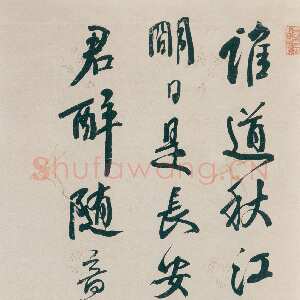 谁道秋江
明日是長安
君醉随
Shufawang.CN